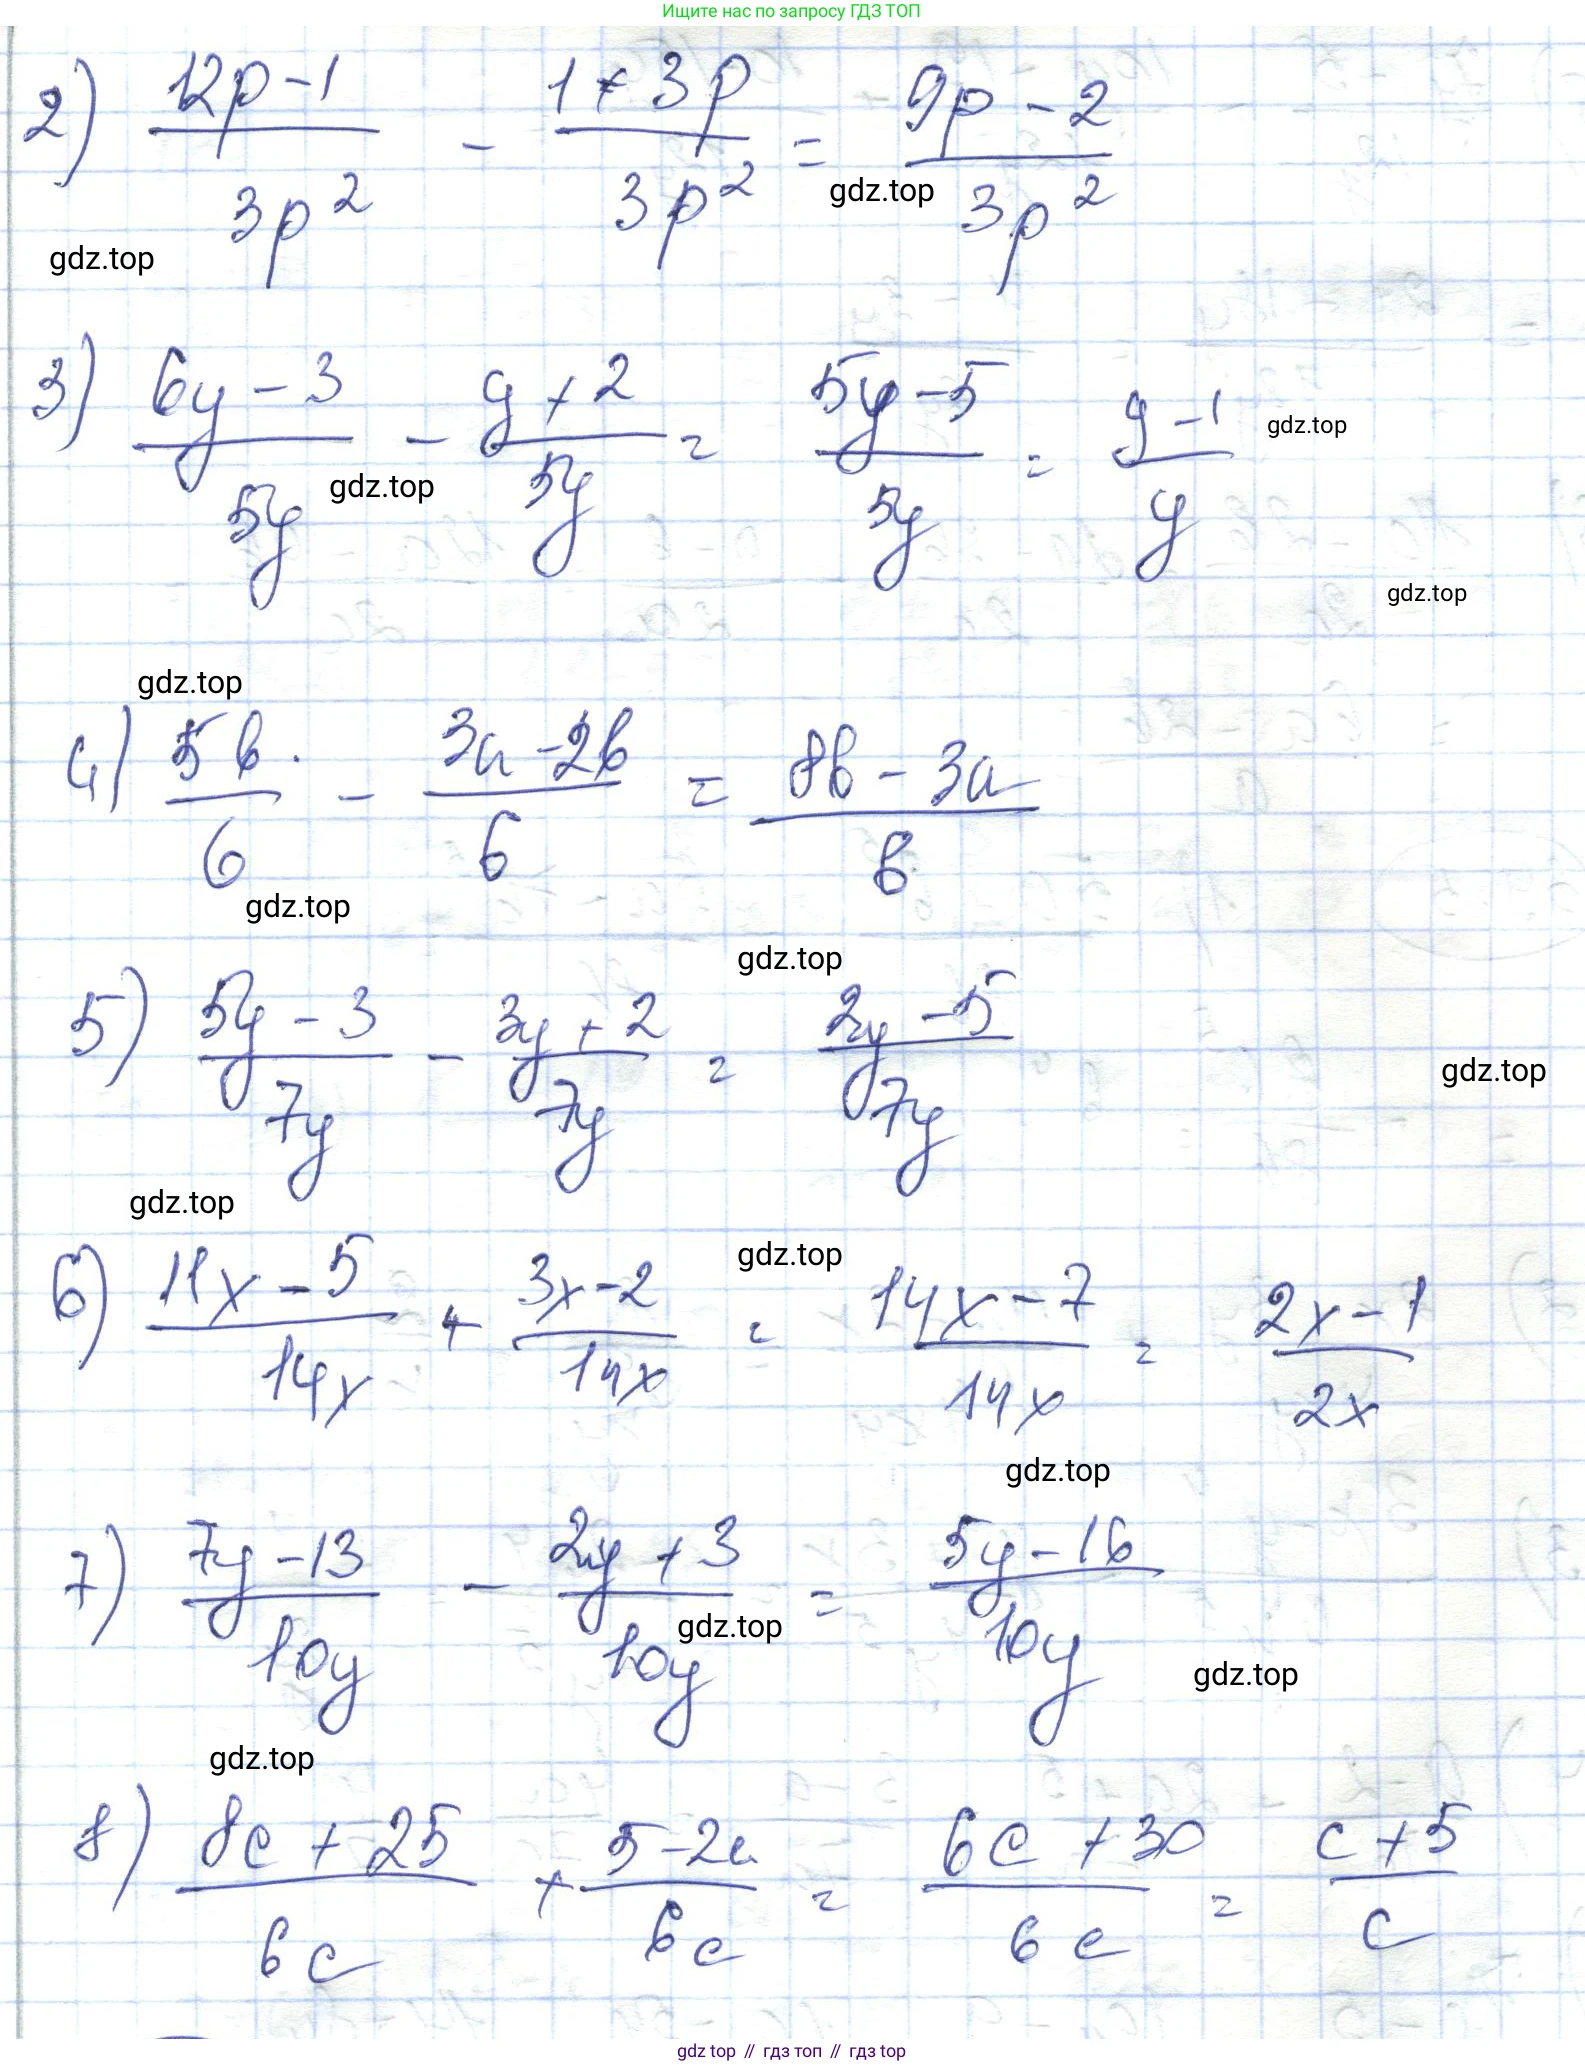 Ищите нас по запросу ГДЗ ТОП
2) (12p - 1)/(3p²) - (1 + 3p)/(3p²) = (9p - 2)/(3p²)
gdz.top
gdz.top
3) (6y - 3)/(5y) - (y + 2)/(5y) = (5y - 5)/(5y) = (y - 1)/y
gdz.top
gdz.top
gdz.top
gdz.top
4) 5b/6 - (3a - 2b)/6 = (8b - 3a)/b
gdz.top
gdz.top
5) (5y - 3)/(7y) - (3y + 2)/(7y) = (2y - 5)/(7y)
gdz.top
gdz.top
gdz.top
6) (11x - 5)/(14x) + (3x - 2)/(14x) = (14x - 7)/(14x) = (2x - 1)/(2x)
gdz.top
7) (7y - 13)/(10y) - (2y + 3)/(10y) = (5y - 16)/(10y)
gdz.top
gdz.top
gdz.top
8) (8c + 25)/(6c) + (5 - 2c)/(6c) = (6c + 30)/(6c) = (c + 5)/c
gdz top // гдз топ // гдз top